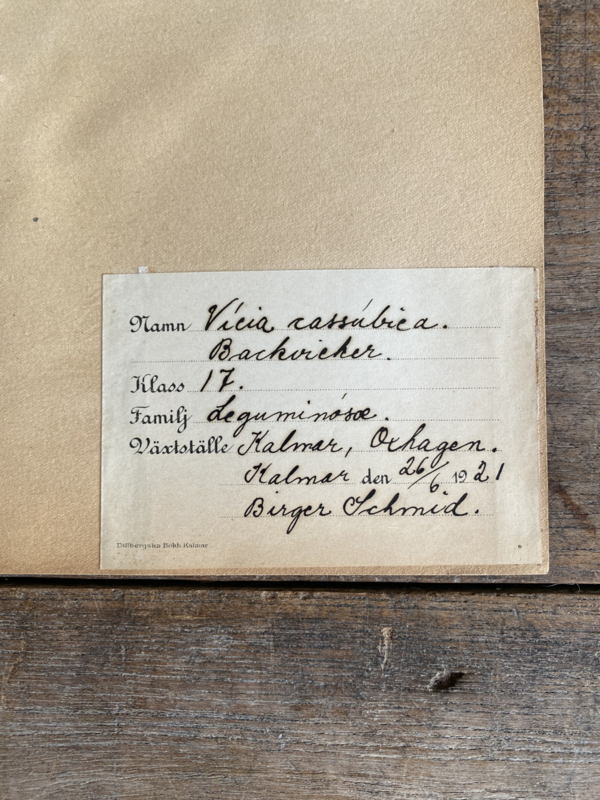 Namn Vícia cassúbica.
Backvicker.
Klass 17.
Familj Leguminósæ.
Växtställe Kalmar, Oxhagen.
Kalmar den 26/6 1921
Birger Schmid.
Dillbergska Bokh. Kalmar